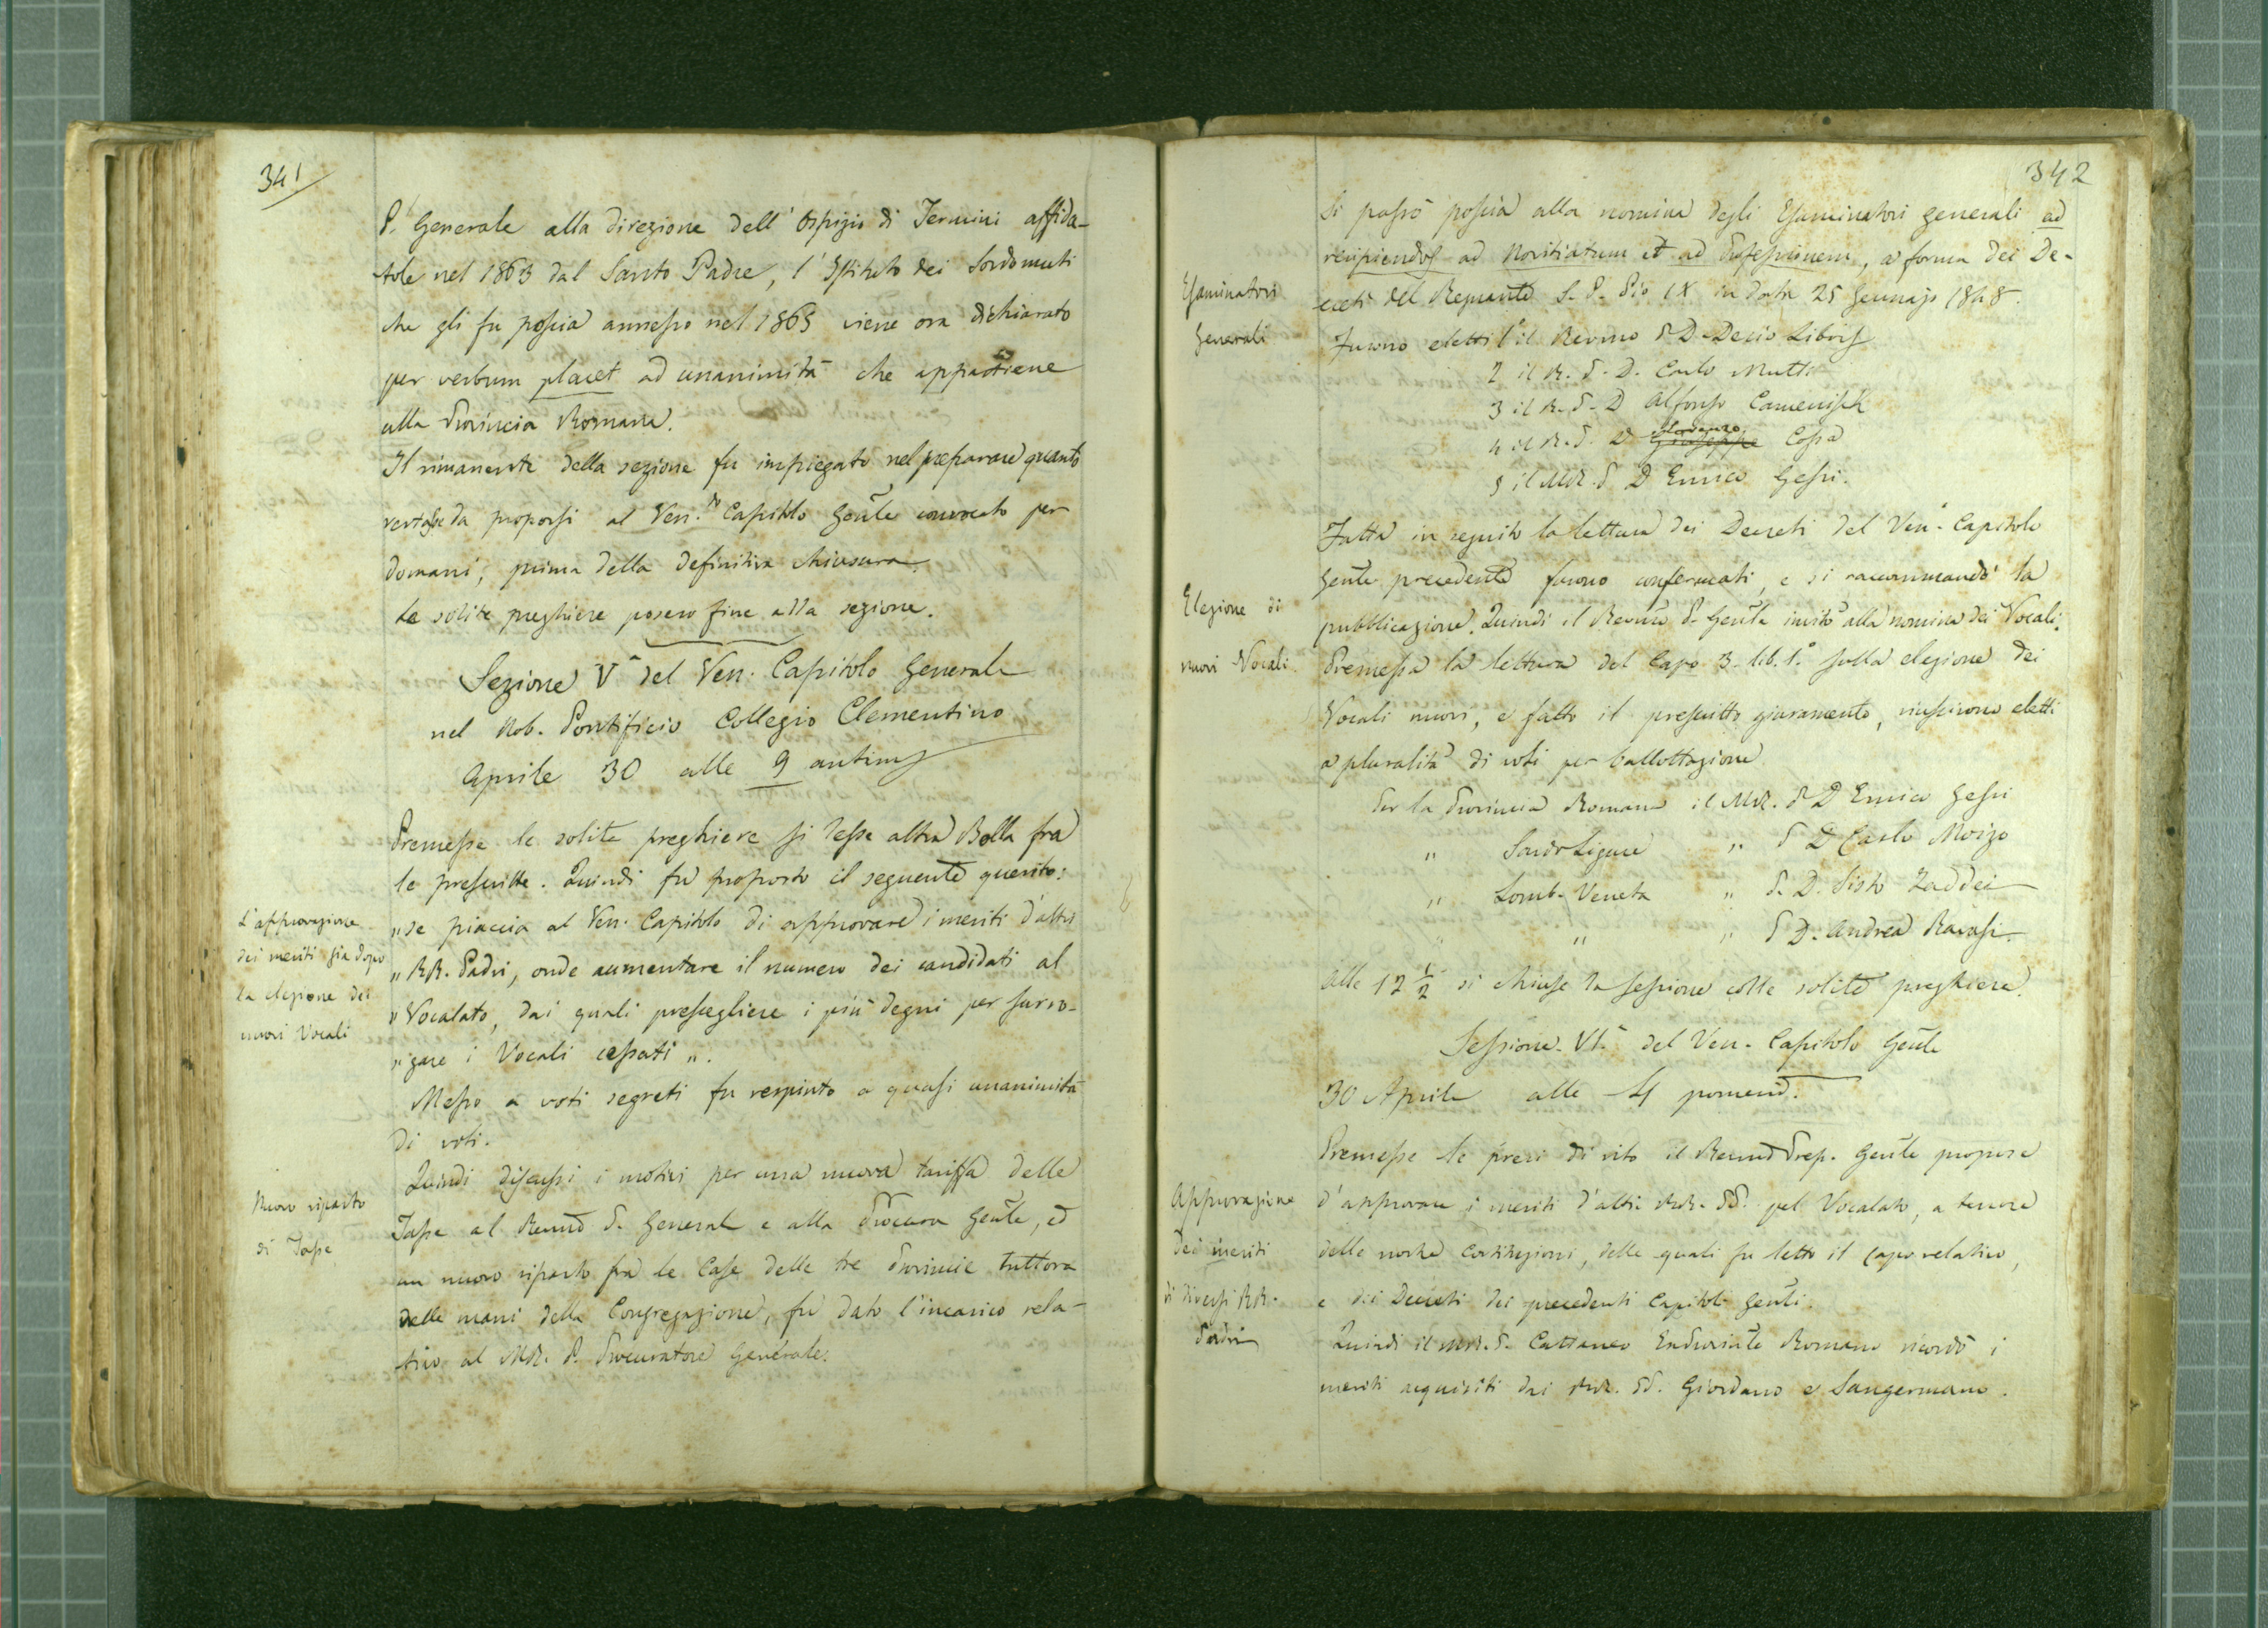 341
P. Generale alla direzione dell' Ospizio di Termini affida-
tole nel 1863 dal Santo Padre, l'Istituto dei Sordomuti
che gli fu poscia annesso nel 1868 viene ora dichiarato
per verbum placet ad unanimità che appartiene
alla Provincia Romana.
Il rimanente della sezione fu impiegato nel preparare quanto
restasse da proporsi al Ven. Capitolo Gen͞le convocato per
domani, prima della definitiva chiusura.
Le solite preghiere posero fine alla sezione.
Sezione Vª del Ven. Capitolo Generale
nel Nob. Pontificio Collegio Clementino
Aprile 30 alle 9 antim
Premesse le solite preghiere si lesse altra Bolla fra
le prescritte. Quindi fu proposto il seguente quesito:
L'approvazione
dei meriti sia dopo
la elezione dei
nuovi Vocali
„ se piaccia al Ven. Capitolo di approvare i meriti d'altri
„ RR. Padri, onde aumentare il numero dei candidati al
„ Vocalato, dai quali prescegliere i più degni per surro-
„ gare i Vocali cessati „.
Messo a voti segreti fu respinto a quasi unanimità
di voti.
Nuovo riparto
di Tasse
Quindi discussi i motivi per una nuova tariffa delle
Tasse al Revmo P. Generale e alla Procura Gen͞le, ed
un nuovo riparto fra le Case delle tre Provincie tuttora
nelle mani della Congregazione, fu dato l'incarico rela-
tivo al MR. P. Procuratore Generale.
342
Si passò poscia alla nomina degli Esaminatori generali ad
recipiendos ad Novitiatum et ad Professionem, a forma dei De-
Esaminatori
Generali
creti del Regnante S. P. Pio IX in data 25 Gennajo 1848.
Furono eletti 1° il Revmo P D. Decio Libois
2 il R. P. D. Carlo Mutti
3 il R. P. D Alfonso Camenisch
4 il R. P. D Giuseppe Cossa
5 il MR. P D Enrico Gessi.
Fatta in seguito la lettura dei Decreti del Ven. Capitolo
Gen͞le precedente furono confermati, e si raccomandò la
Elezione di
nuovi Vocali
pubblicazione. Quindi il Revmo P. Gen͞le invitò alla nomina dei Vocali.
Premessa la lettura del Capo 3. lib. 1.° sulla elezione dei
Vocali nuovi, e fatto il prescritto giuramento, riuscirono eletti
a pluralità di voti per ballottazione
Per la Provincia Romana il MR. P D Enrico Gessi
„ Sardo Ligure „ P D Carlo Moizo
„ Lomb. Veneta „ P. D. Sisto Zaddei
„ „ „ P D. Andrea Ravasi.
Alle 12 ½ si chiuse la sessione colle solite preghiere.
Sessione VIª del Ven. Capitolo Gen͞le
30 Aprile alle 4 pomerid.
Premesse le preci di rito il Revmo Prep. Gen͞le propose
Approvazione
dei meriti
di diversi RR.
Padri
d'approvare i meriti d'altri RR. PP. pel Vocalato, a tenore
delle nostre Costituzioni, delle quali fu letto il capo relativo,
e dei Decreti dei precedenti Capitoli Gen͞li.
Quindi il MR. P. Cattaneo Exprovin͞le Romano ricordò i
meriti acquisiti dai RR. PP. Giordano e Sangermano.